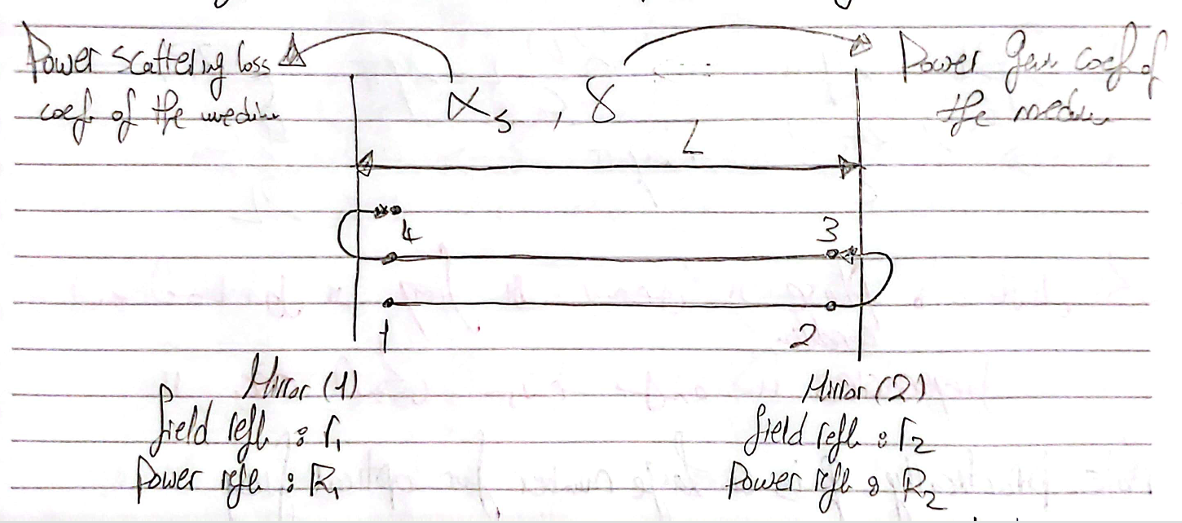 Power scattering loss
coef of the medium
αs , γ
Power Gain coef of
the medium
L
4
3
1
2
Mirror (1)
field refl : r1
Power refl : R1
Mirror (2)
field refl : r2
Power refl : R2